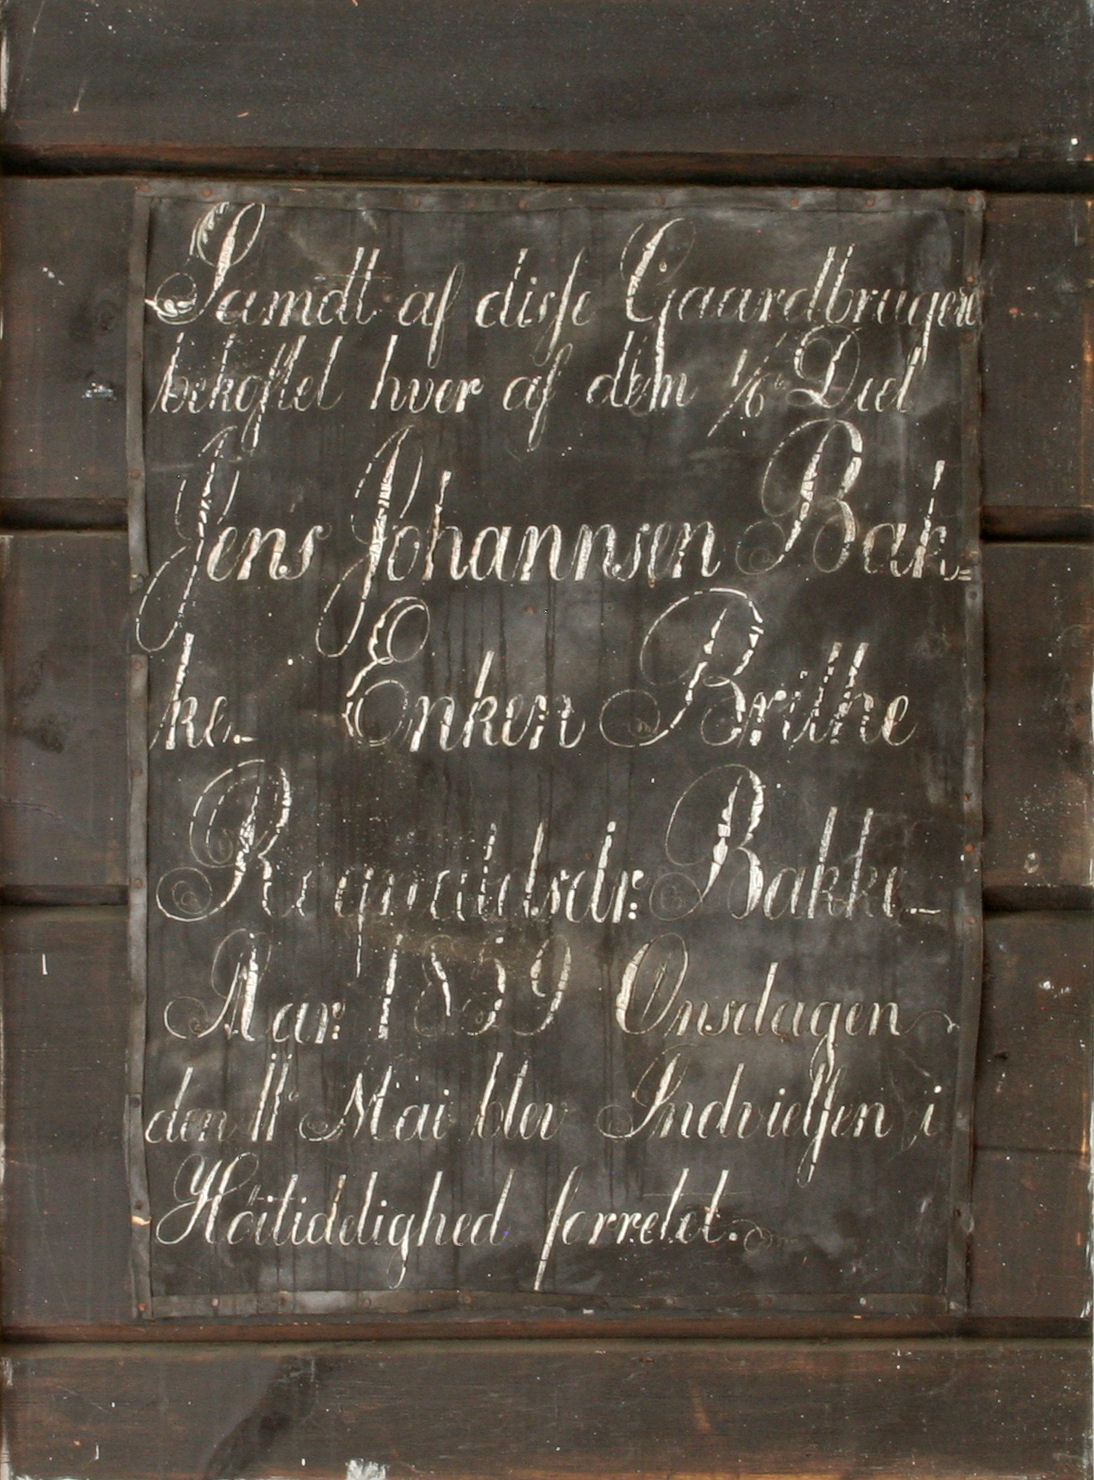 Samdt af disse Gaardbrugere
bekostet hver af dem 1/6 Deel
Jens Johannsen Bak=
ke._ Enken Brithe
Bakke_
Aar: 1859 Onsdagen
den 11te Mai blev Indvielsen i
Høitidelighed forretet.